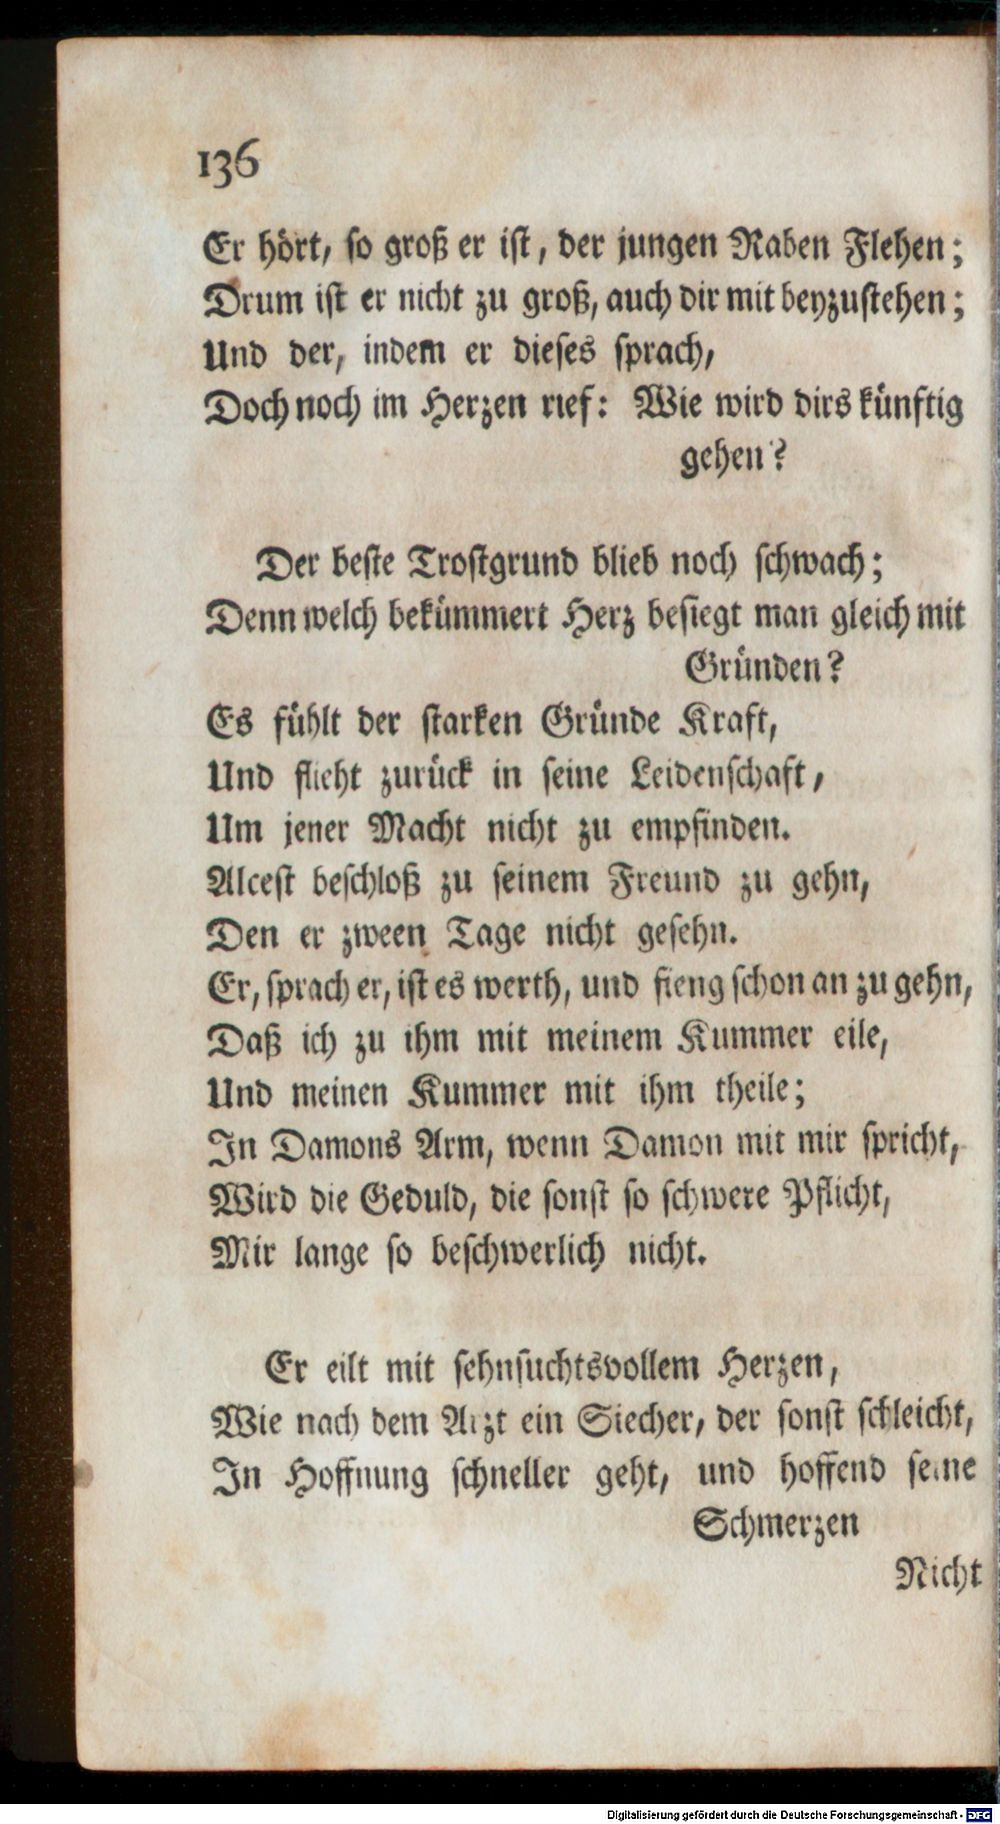 136
Er hört, so groß er ist, der jungen Raben Flehen;
Drum ist er nicht zu groß, auch dir mit beyzustehen;
Und der, indem er dieses sprach,
Doch noch im Herzen rief: Wie wird dirs künftig
gehen?
Der beste Trostgrund blieb noch schwach;
Denn welch bekümmert Herz besiegt man gleich mit
Gründen?
Es fühlt der starken Gründe Kraft,
Und flieht zurück in seine Leidenschaft,
Um jener Macht nicht zu empfinden.
Alcest beschloß zu seinem Freund zu gehn,
Den er zween Tage nicht gesehn.
Er, sprach er, ist es werth, und fieng schon an zu gehn,
Daß ich zu ihm mit meinem Kummer eile,
Und meinen Kummer mit ihm theile;
In Damons Arm, wenn Damon mit mir spricht,
Wird die Geduld, die sonst so schwere Pflicht,
Mir lange so beschwerlich nicht.
Er eilt mit sehnsuchtsvollem Herzen,
Wie nach dem Arzt ein Siecher, der sonst schleicht,
In Hoffnung schneller geht, und hoffend seine
Schmerzen
Nicht
Digitalisierung gefördert durch die Deutsche Forschungsgemeinschaft - DFG